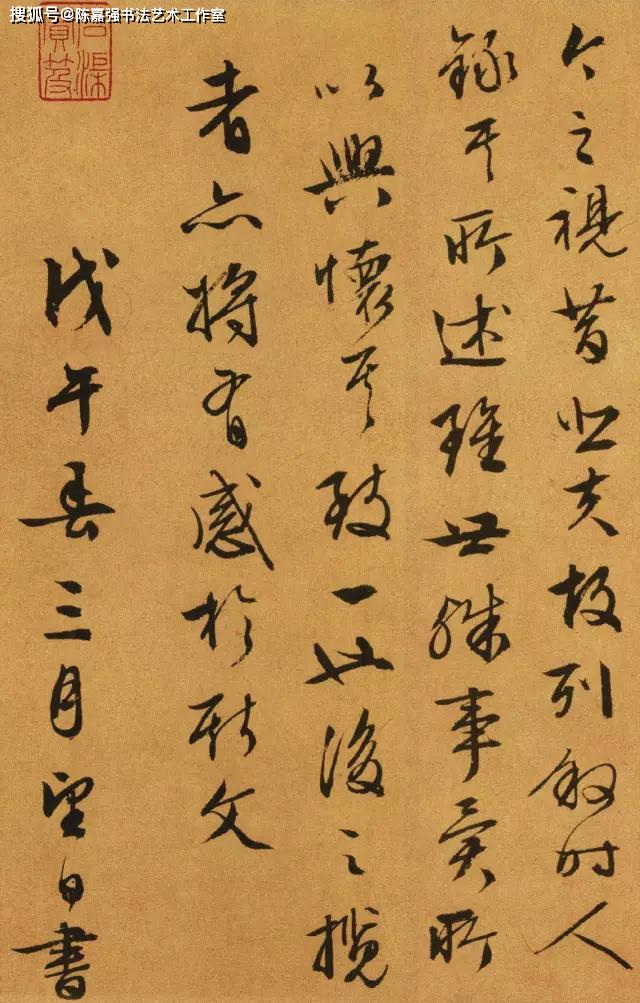 搜狐号@陈嘉强书法艺术工作室
今之視昔悲夫故列叙時人
錄其所述雖世殊事異所
以興懷其致一也後之攬
者亦將有感於斯文
戊午春三月望日書
石渠
寶笈